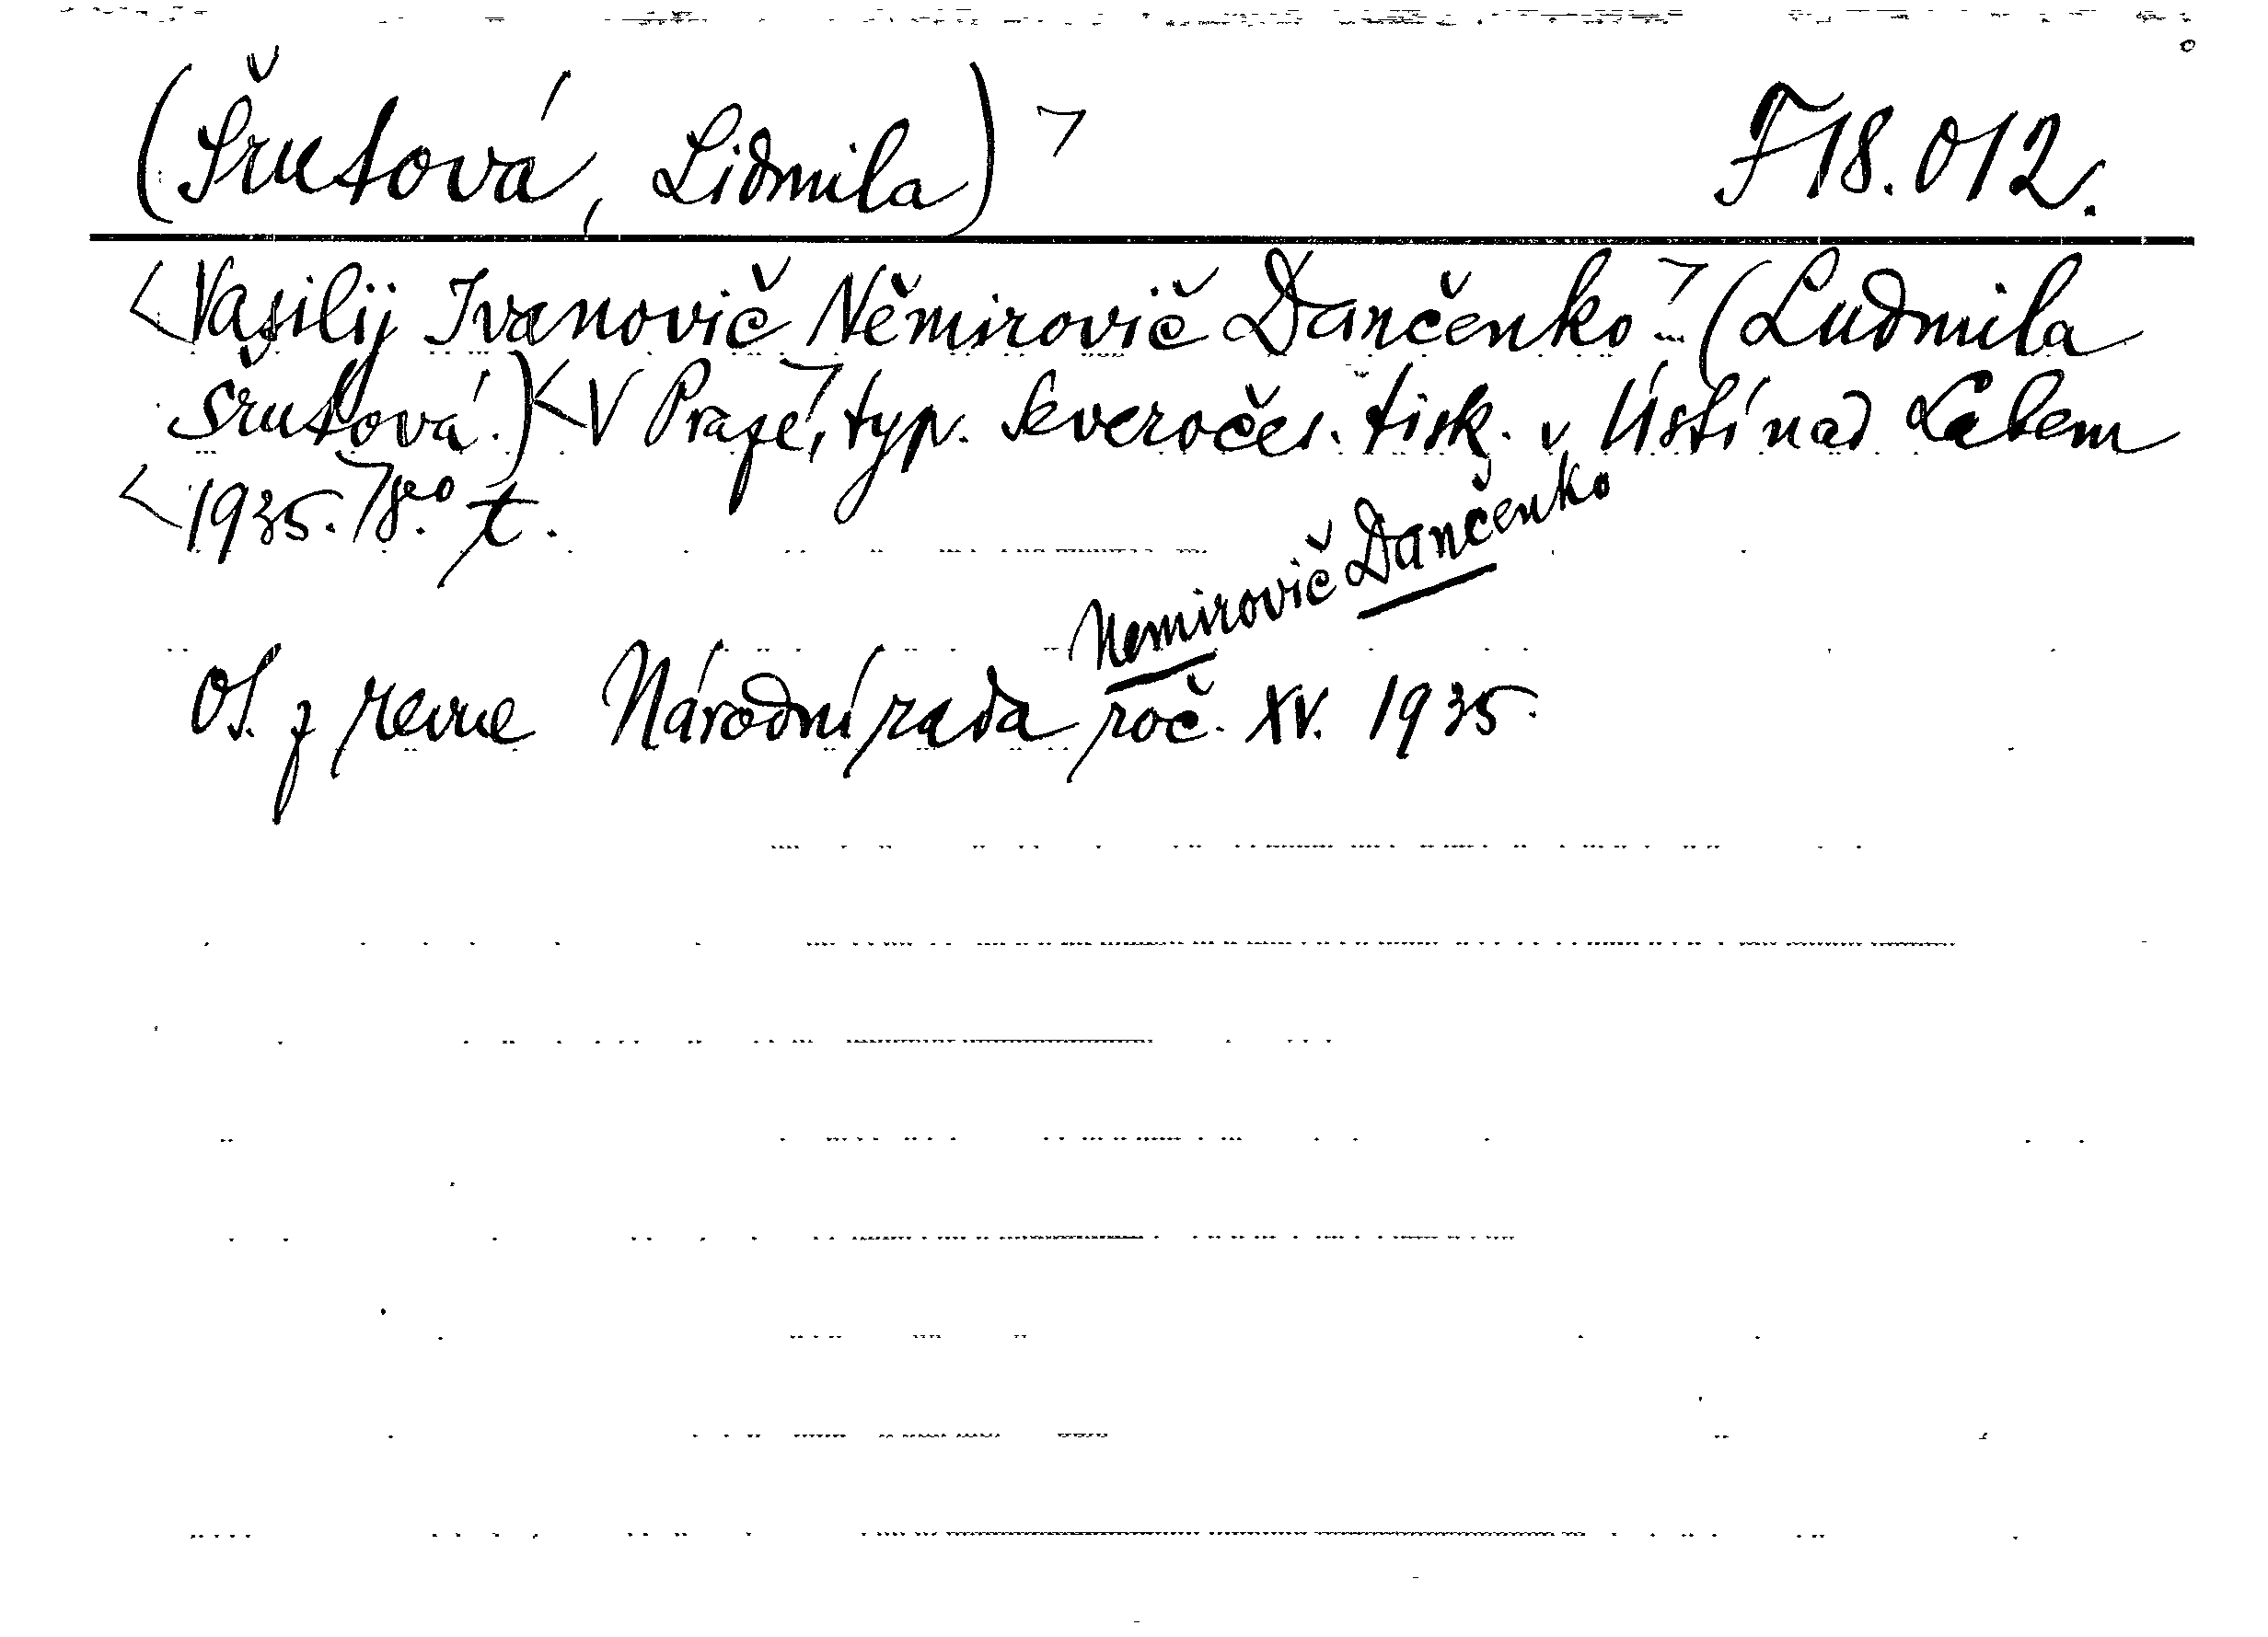 (Šrutová, Lidmila)> F18.012.
<Vasilij Ivanovič Němirovič Dančenko.> (Ludmila
Šrutová.) <V Praze,> typ. Severočes. tisk. v Ústí nad Labem
<1935.> 8o. t.
Nemirovič Dančenko
OS. z revue Národní rada roč. XV. 1935.